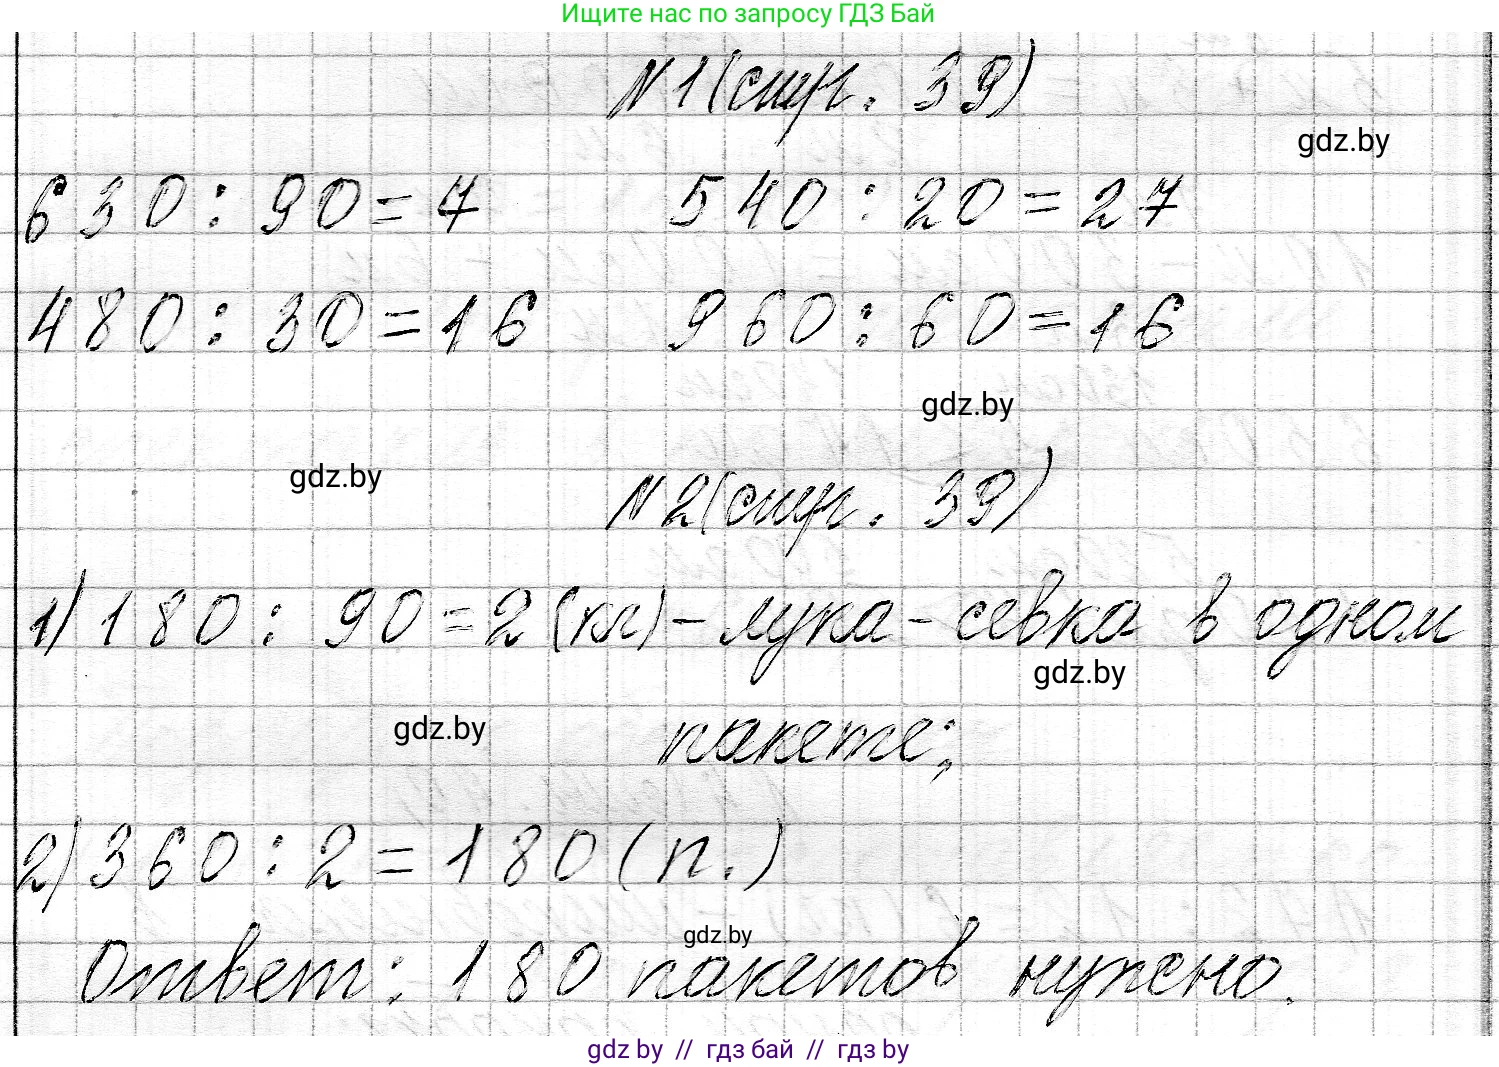 Ищите нас по запросу ГДЗ Бай
№1(стр. 39)
gdz.by
630 : 90 = 7 540 : 20 = 27
480 : 30 = 16 960 : 60 = 16
gdz.by
gdz.by
№2(стр. 39)
1) 180 : 90 = 2 (кг) - лука - севка в одном
gdz.by
gdz.by
пакете;
2) 360 : 2 = 180 (п.)
gdz.by
Ответ: 180 пакетов нужно.
gdz by // гдз бай // гдз by